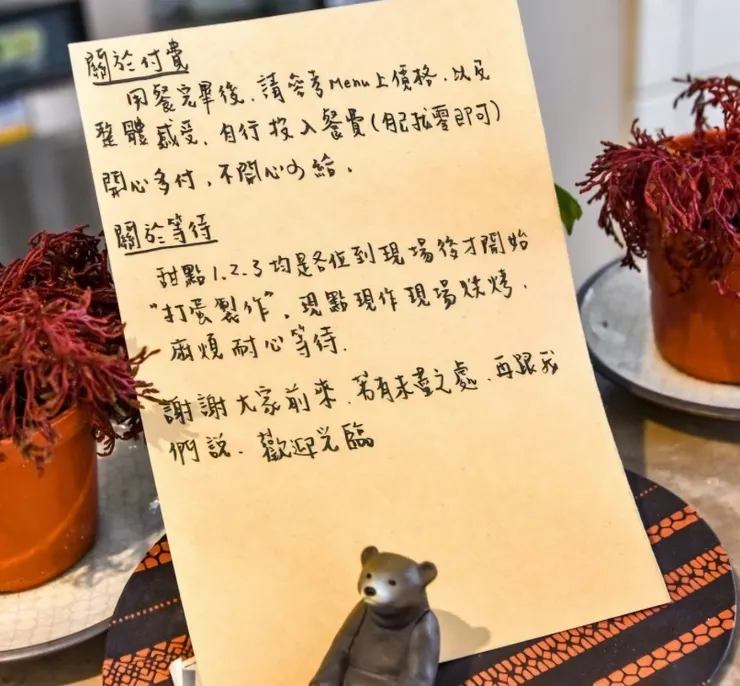 關於付費
用餐完畢後,請參考Menu上價格,以及
整體感受,自行投入餐費(自己找零即可)
開心多付,不開心少給。
關於等待
甜點1.2.3均是各位到現場後才開始
"打蛋製作",現點現作現場烘烤,
麻煩耐心等待.
謝謝大家前來,若有未盡之處,再跟我
們說.歡迎光臨